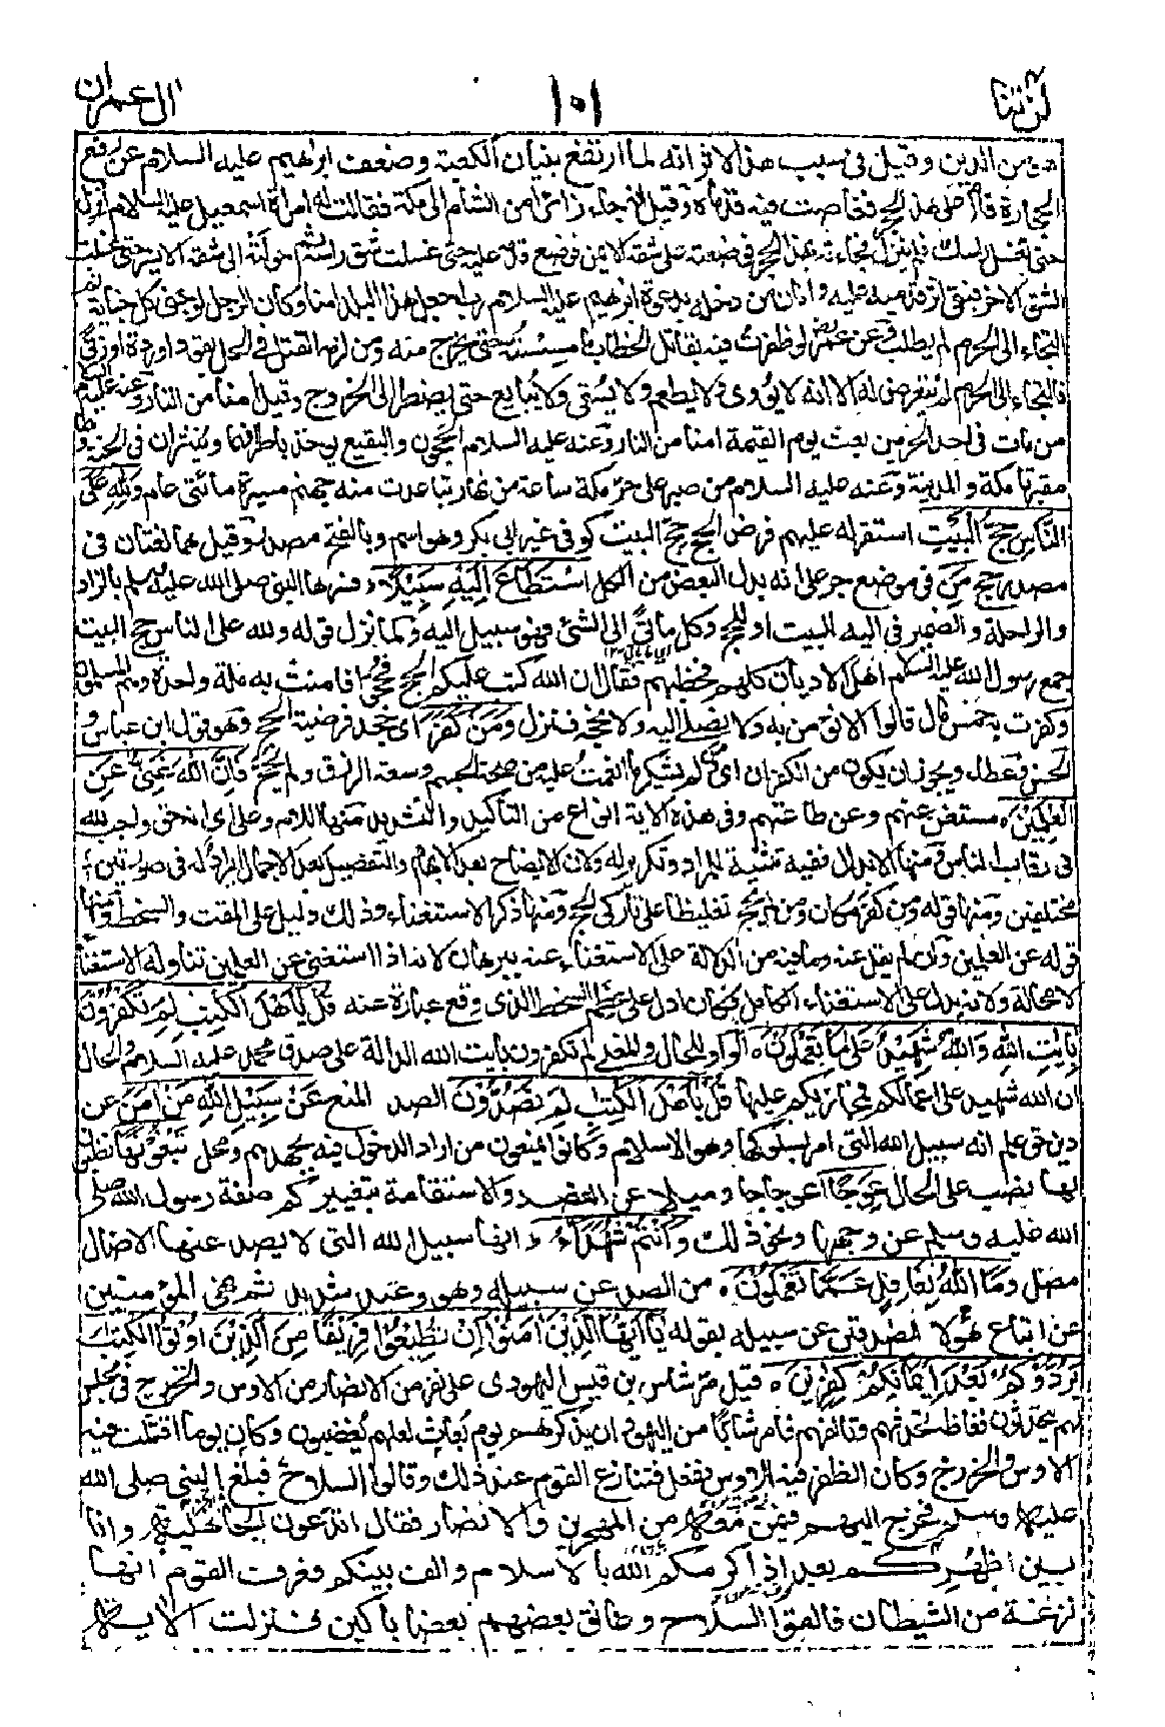 لن تنا ١٠١ ال عمران
من الدين وقيل في سبب هذا الاثر انه لما ارتفع بنيان الكعبة وضعف ابراهيم عليه السلام عن رفع
الحجارة قام على هذا الحجر فغاصت فيه قدماه وقيل انه جاء زائرا من الشام الى مكة فقالت له امرأة اسمعيل عليه السلام انزل
حتى تغسل راسك فلم ينزل فجاءته بهذا الحجر فوضعته على شقه الايمن فوضع قدمه عليه حتى غسلت شق راسه ثم حولته الى شقه الايسر حتى غسلت
الشق الاخر فبقى اثر قدميه عليه وامان من دخله بدعوة ابرهيم عليه السلام رب اجعل هذا البلد امنا وكان الرجل لو جنى كل جناية ثم
التجاء الى الحرم لم يطلب وعن عمر لو ظفرت فيه بقاتل الخطاب ما مسسته حتى يخرج منه ومن لزمه القتل في الحل بقود او ردة او زنى
فالتجاء الى الحرم لم يتعرض له الا انه لا يؤوى ولا يطعم ولا يسقى ولا يبايع حتى يضطر الى الخروج وقيل امنا من النار وعنه عليه السلام
من مات في احد الحرمين بعث يوم القيمة امنا من النار وعنه عليه السلام الحجون والبقيع يوخذ باطرافهما وينثران في الجنة وهما
مقبرتا مكة والمدينة وعنه عليه السلام من صبر على حر مكة ساعة من نهار تباعدت منه جهنم مسيرة مائتى عام ولله على
الناس حج البيت استقر له عليهم فرض الحج حج البيت كوفى غير ابى بكر وهو اسم وبالفتح مصدر وقيل هما لغتان في
مصدر حج من في موضع جر على انه بدل البعض من الكل استطاع اليه سبيلا وفسرها النبى صلى الله عليه وسلم بالزاد
والراحلة والضمير في اليه للبيت او للحج وكل ماتىّ الى الشئ فهو سبيل اليه ولما نزل قوله ولله على الناس حج البيت
جمع رسول الله عليه السلام اهل الاديان كلهم فخطبهم فقال ان الله كتب عليكم الحج فحجوا فامنت به ملة واحدة وهم المسلمون
وكفرت به خمس ملل قالوا لا نؤمن به ولا نصلى اليه ولا نحجه فنزل ومن كفر اى جحد فرضية الحج وهو قول ابن عباس و
الحسن وعطاء ويجوز ان يكون من الكفران اى لم يشكر ما انعمت عليه من صحة الجسم وسعة الرزق ولم يحج فان الله غنى عن
العلمين مستغن عنهم وعن طاعتهم وفي هذه الاية انواع من التأكيد والتشديد منها اللام وعلى اى انه حق واجب لله
في رقاب الناس ومنها الابدال ففيه تثنية للمراد وتكرير له ولان الايضاح بعد الابهام والتفصيل بعد الاجمال ايراد له في صورتين
مختلفتين ومنها قوله ومن كفر مكان ومن لم يحج تغليظا على تارك الحج ومنها ذكر الاستغناء وذلك دليل على المقت والسخط ومنها
قوله عن العلمين وان لم يقل عنه وما فيه من الدلالة على الاستغناء عنه ببرهان لانه اذا استغنى عن العلمين تناوله الاستغناء
لا محالة ولانه يدل على الاستغناء الكامل فكان ادل على عظم السخط الذى وقع عبارة عنه قل ياهل الكتب لم تكفرون
بايت الله والله شهيد على ما تعملون الواو للحال والمعنى لم تكفرون بايت الله الدالة على صدق محمد عليه السلام والحال
ان الله شهيد على اعمالكم فيجازيكم عليها قل ياهل الكتب لم تصدون الصد المنع عن سبيل الله من امن عن
دين حق علم انه سبيل الله التى امر بسلوكها وهو الاسلام وكانوا يمنعون من اراد الدخول فيه بجهدهم ومحل تبغونها تطلبون
لها نصب على الحال عوجا اعوجاجا وميلا عن القصد والاستقامة بتغييركم صفة رسول الله صلى
الله عليه وسلم عن وجهها ونحو ذلك وانتم شهداء انها سبيل الله التى لا يصد عنها الا ضال
مضل وما الله بغافل عما تعملون من الصد عن سبيله وهو وعيد شديد ثم نهى المؤمنين
عن اتباع هؤلاء الصادين عن سبيله بقوله ياايها الذين امنوا ان تطيعوا فريقا من الذين اوتوا الكتب
يردوكم بعد ايمانكم كفرين قيل مر شاس بن قيس اليهودى على نفر من الانصار من الاوس والخزرج في مجلس
لهم يتحدثون فغاظه تحدثهم وتالفهم فامر شابا من اليهود ان يذكرهم يوم بعاث لعلهم يغضبون وكان يوما اقتتلت فيه
الاوس والخزرج وكان الظفر فيه للاوس ففعل فتنازع القوم عند ذلك وقالوا السلاح فبلغ النبى صلى الله
عليه وسلم فخرج اليهم فيمن معه من المهجرين والانصار فقال اتدعون الجاهلية وانا
بين اظهركم بعد اذ اكرمكم الله بالاسلام والف بينكم فعرف القوم انها
نزغة من الشيطان فالقوا السلاح وعانق بعضهم بعضا باكين فنزلت الاية